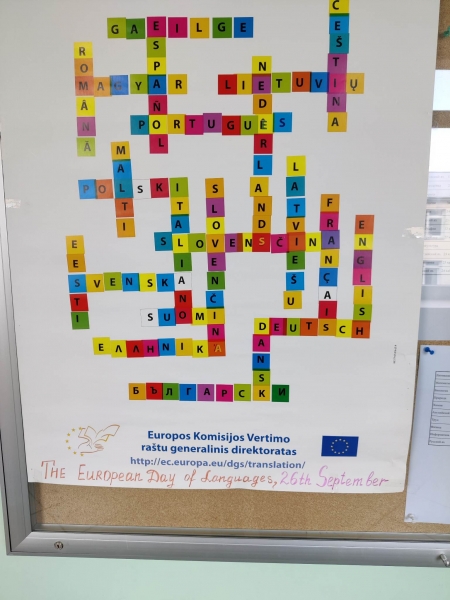 GAEILGE
ESPAÑOL
ČEŠTINA
ROMÂNĂ
MAGYAR
LIETUVIŲ
NEDERLANDS
PORTUGUÊS
MALTI
POLSKI
ITALIANO
SLOVENČINA
LATVIEŠU
FRANÇAIS
ENGLISH
SLOVENŠČINA
EESTI
SVENSKA
SUOMI
DEUTSCH
DANSK
ΕΛΛΗΝΙΚΑ
БЪЛГАРСКИ
Europos Komisijos Vertimo
raštu generalinis direktoratas
http://ec.europa.eu/dgs/translation/
THE European Day of Languages, 26th September